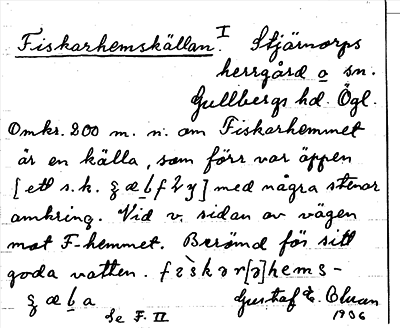 Fiskarhemskällan. I Stjärnorps
herrgård o sn.
Gullbergs hd. Ögl.
Omkr. 200 m. n. om Fiskarhemmet
är en källa, som förr var öppen
[ett s.k.] med några stenar
omkring. Vid v. sidan av vägen
mot F-hemmet. Berömd för sitt
goda vatten.
Se F. II Gustaf E.
1936